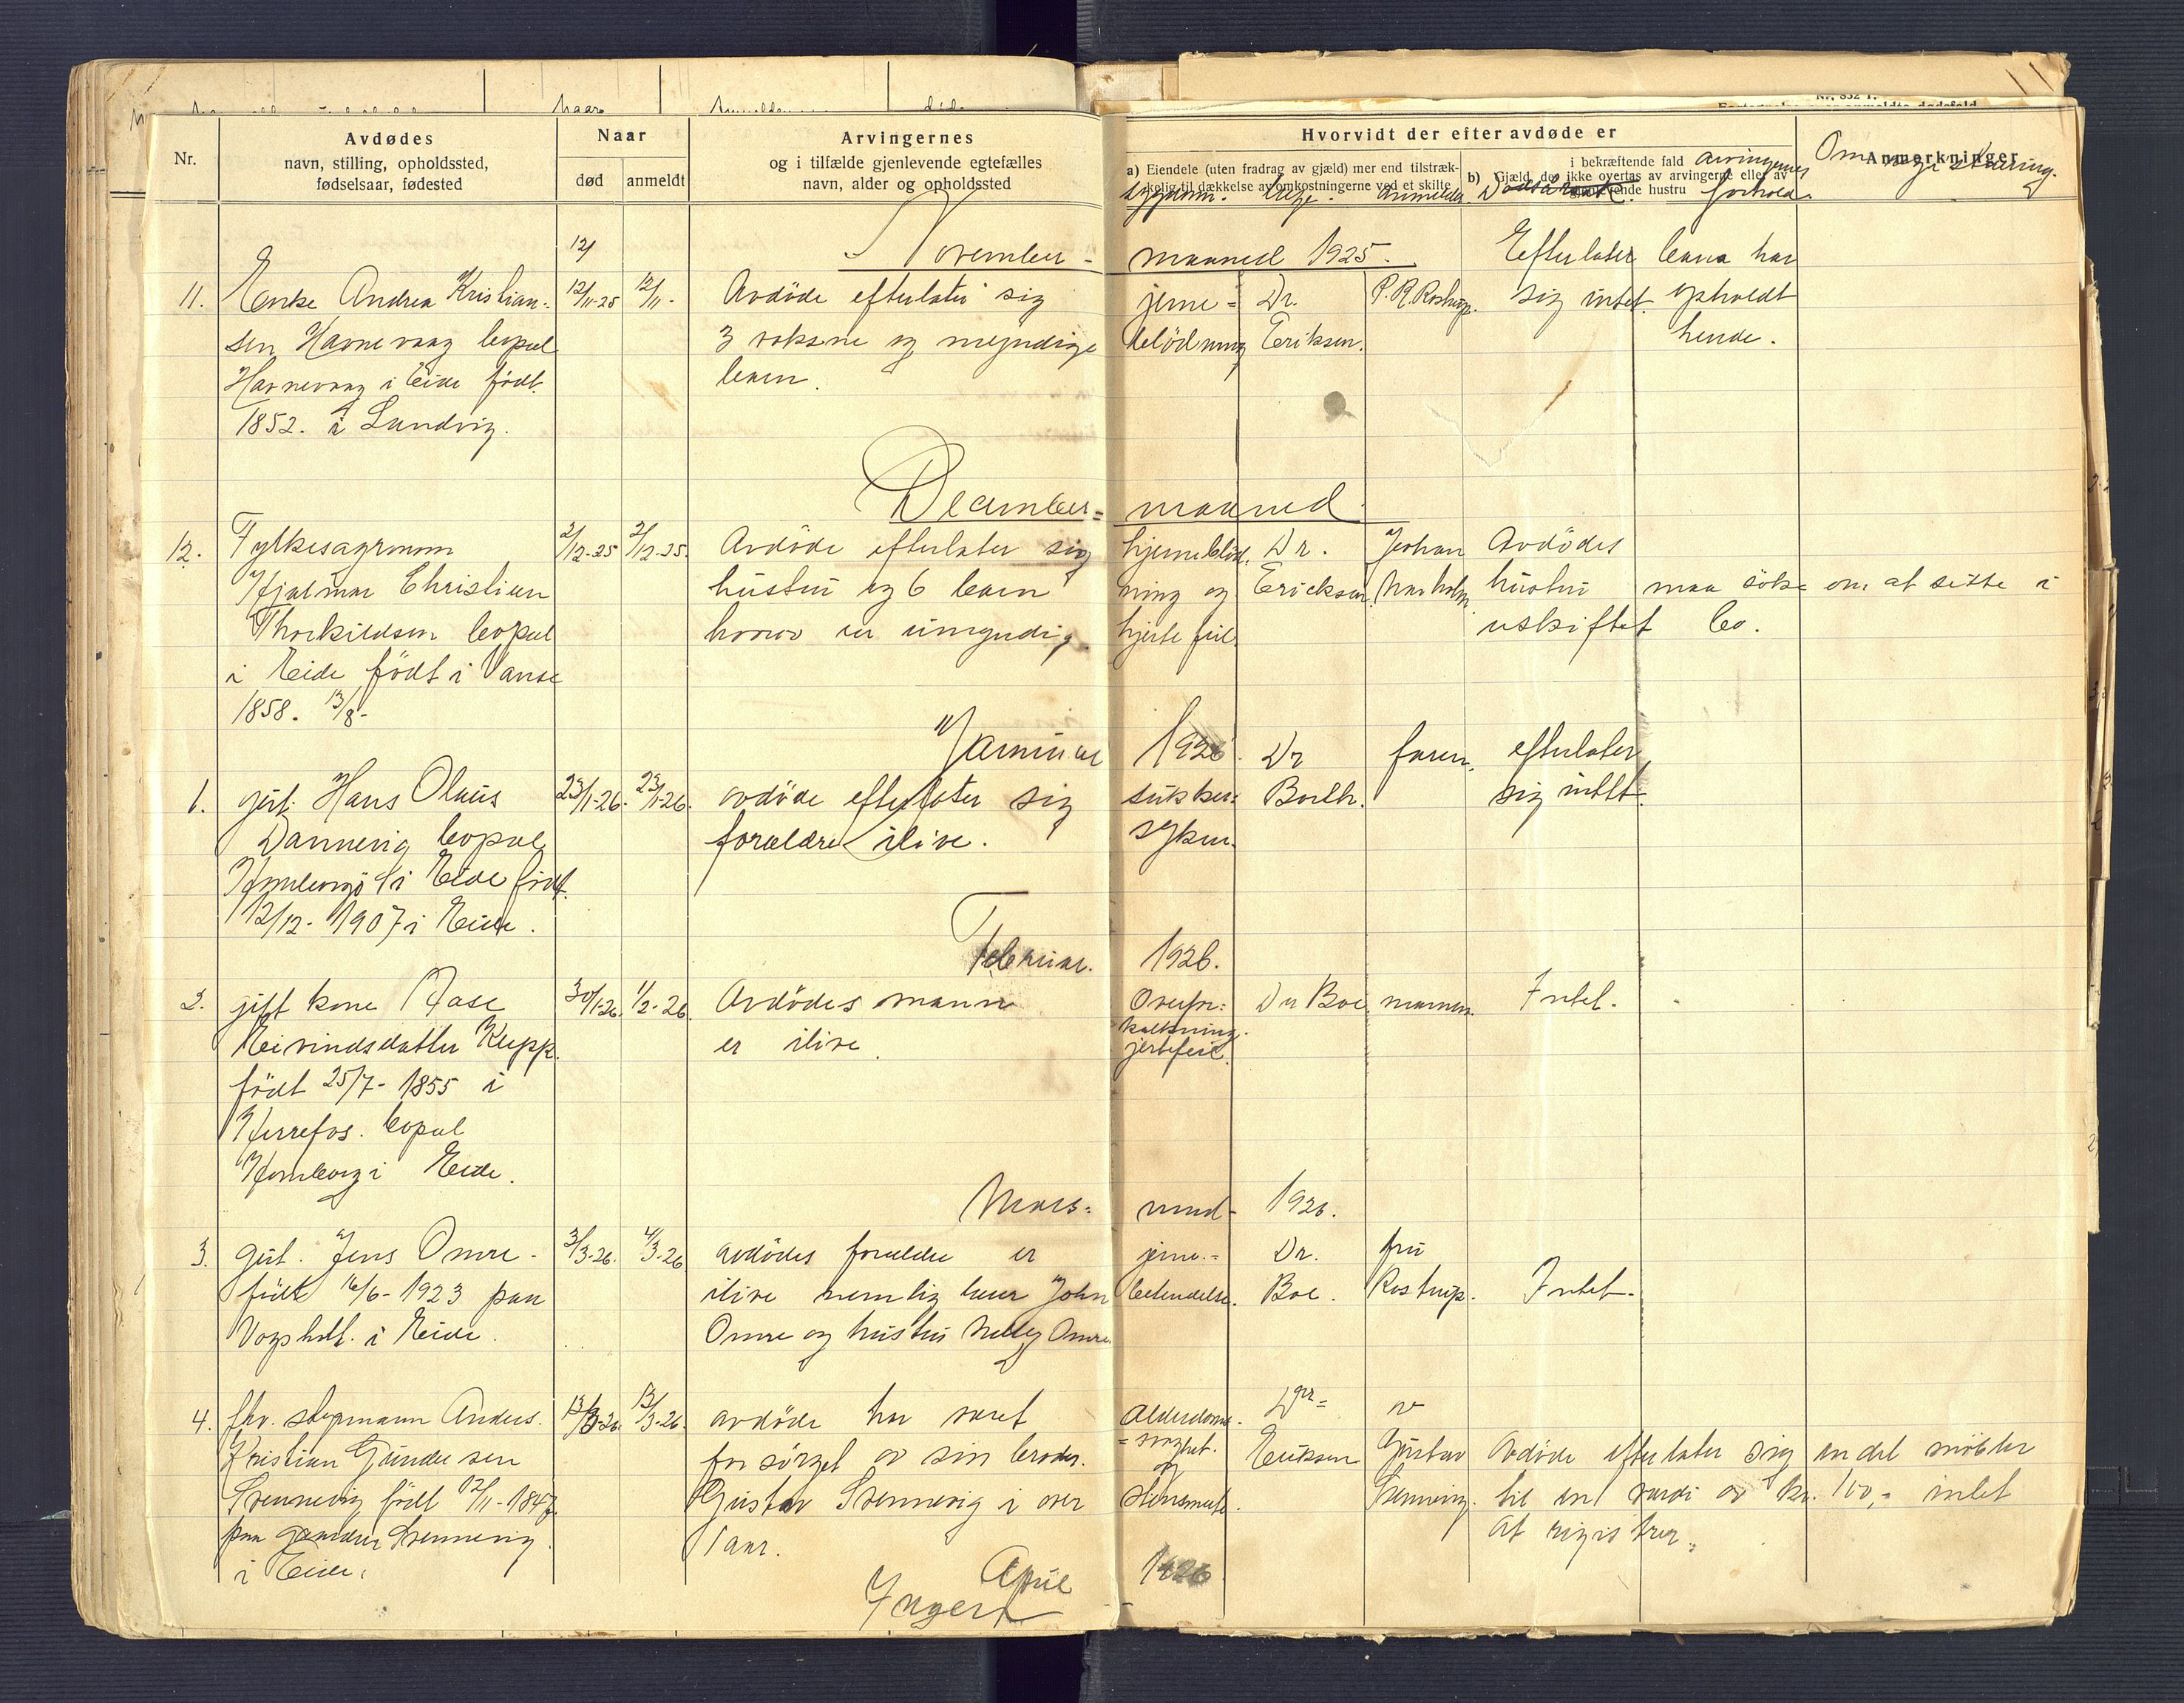 Nr. 852 1.
Nr.
Avdødes
navn, stilling, opholdssted,
fødselsaar, fødested
Naar
død
anmeldt
Arvingernes
og i tilfælde gjenlevende egtefælles
navn, alder og opholdssted
Hvorvidt der efter avdøde er
a) Eiendele (uten fradrag av gjæld) mer end tilstræk-
kelig til dækkelse av omkostningerne ved et skifte
sygdom. læge. anmelder.
i bekræftende fald
b) Gjæld, der ikke overtas av arvingerne eller av
gjenlevende hustru
arvingernes
forhold.
Anmerkninger
Om registrering.
November = maaned 1925.
11. Enke Andrea Kristian-
sen Havnevaag bopæl
Havnevaag i Eide født
1852. i Landvig.
12/11-25
12/11-
Avdöde efterlater sig
3 voksne og myndige
barn.
jerne =
blödning
Dr.
Eriksen.
P. R. Rostrup.
Efterlater
sig intet.
barna har
opholdt
hende.
December = maaned
12. Fylkesagronom
Hjalmar Christian
Thorkildsen bopæl
i Eide födt i Vanse
1858. 13/8-
2/12-25
2/12-25.
Avdöde efterlater sig
hustru og 6 barn
hvorav er umyndig.
hjerneblöd-
ning og
hjertefeil.
Dr.
Ericksen
Johan
Avdödes
hustru maa söke om at sitte i
uskiftet bo.
Januar 1926.
1. gut. Hans Olaus
Dannevig bopæl
Homborgö i Eide födt.
12/12-1907 i Eide.
23/1-26.
23/1-26.
avdöde efterlater sig
forældre ilive.
sukker-
syken.
Dr
faren.
efterlater
sig intet.
Februar. 1926.
2. gift kone Aase
Eivindsdatter Kupp.
födt 25/7-1855 i
Herrefos. bopæl
Homborg i Eide.
30/1-26.
1/2-26.
Avdödes mann
er ilive.
kalkning.
jertefeil.
Dr Boe
mannen.
Intet.
Mars = mnd- 1926.
3. gut. Jens Omre-
födt 16/6-1923 paa
Vogsholt. i Eide.
3/3-26.
4/3-26
avdödes forældre er
ilive nemlig herr John
Omre og hustru Nelly Omre
jerne.=
betendelse.
Dr.
Boe.
fru
Rostrup.
Intet.
4. fhv. styrmann Anders.
Kristian Gundersen
Svennevig födt 12/11-1847
paa gaarden Svennevig
i Eide.
13/3-26.
13/3-26.
avdöde har været
forsörget av sin broder.
Gustav Svennevig i over
1 aar.
Alderdoms-
=svaghet.
og
Eriksen
Gustav
Svennevig.
Avdöde efterlater sig en del möbler
til en værdi av kr. 100,- intet
at registrer.
April 1926
Ingen